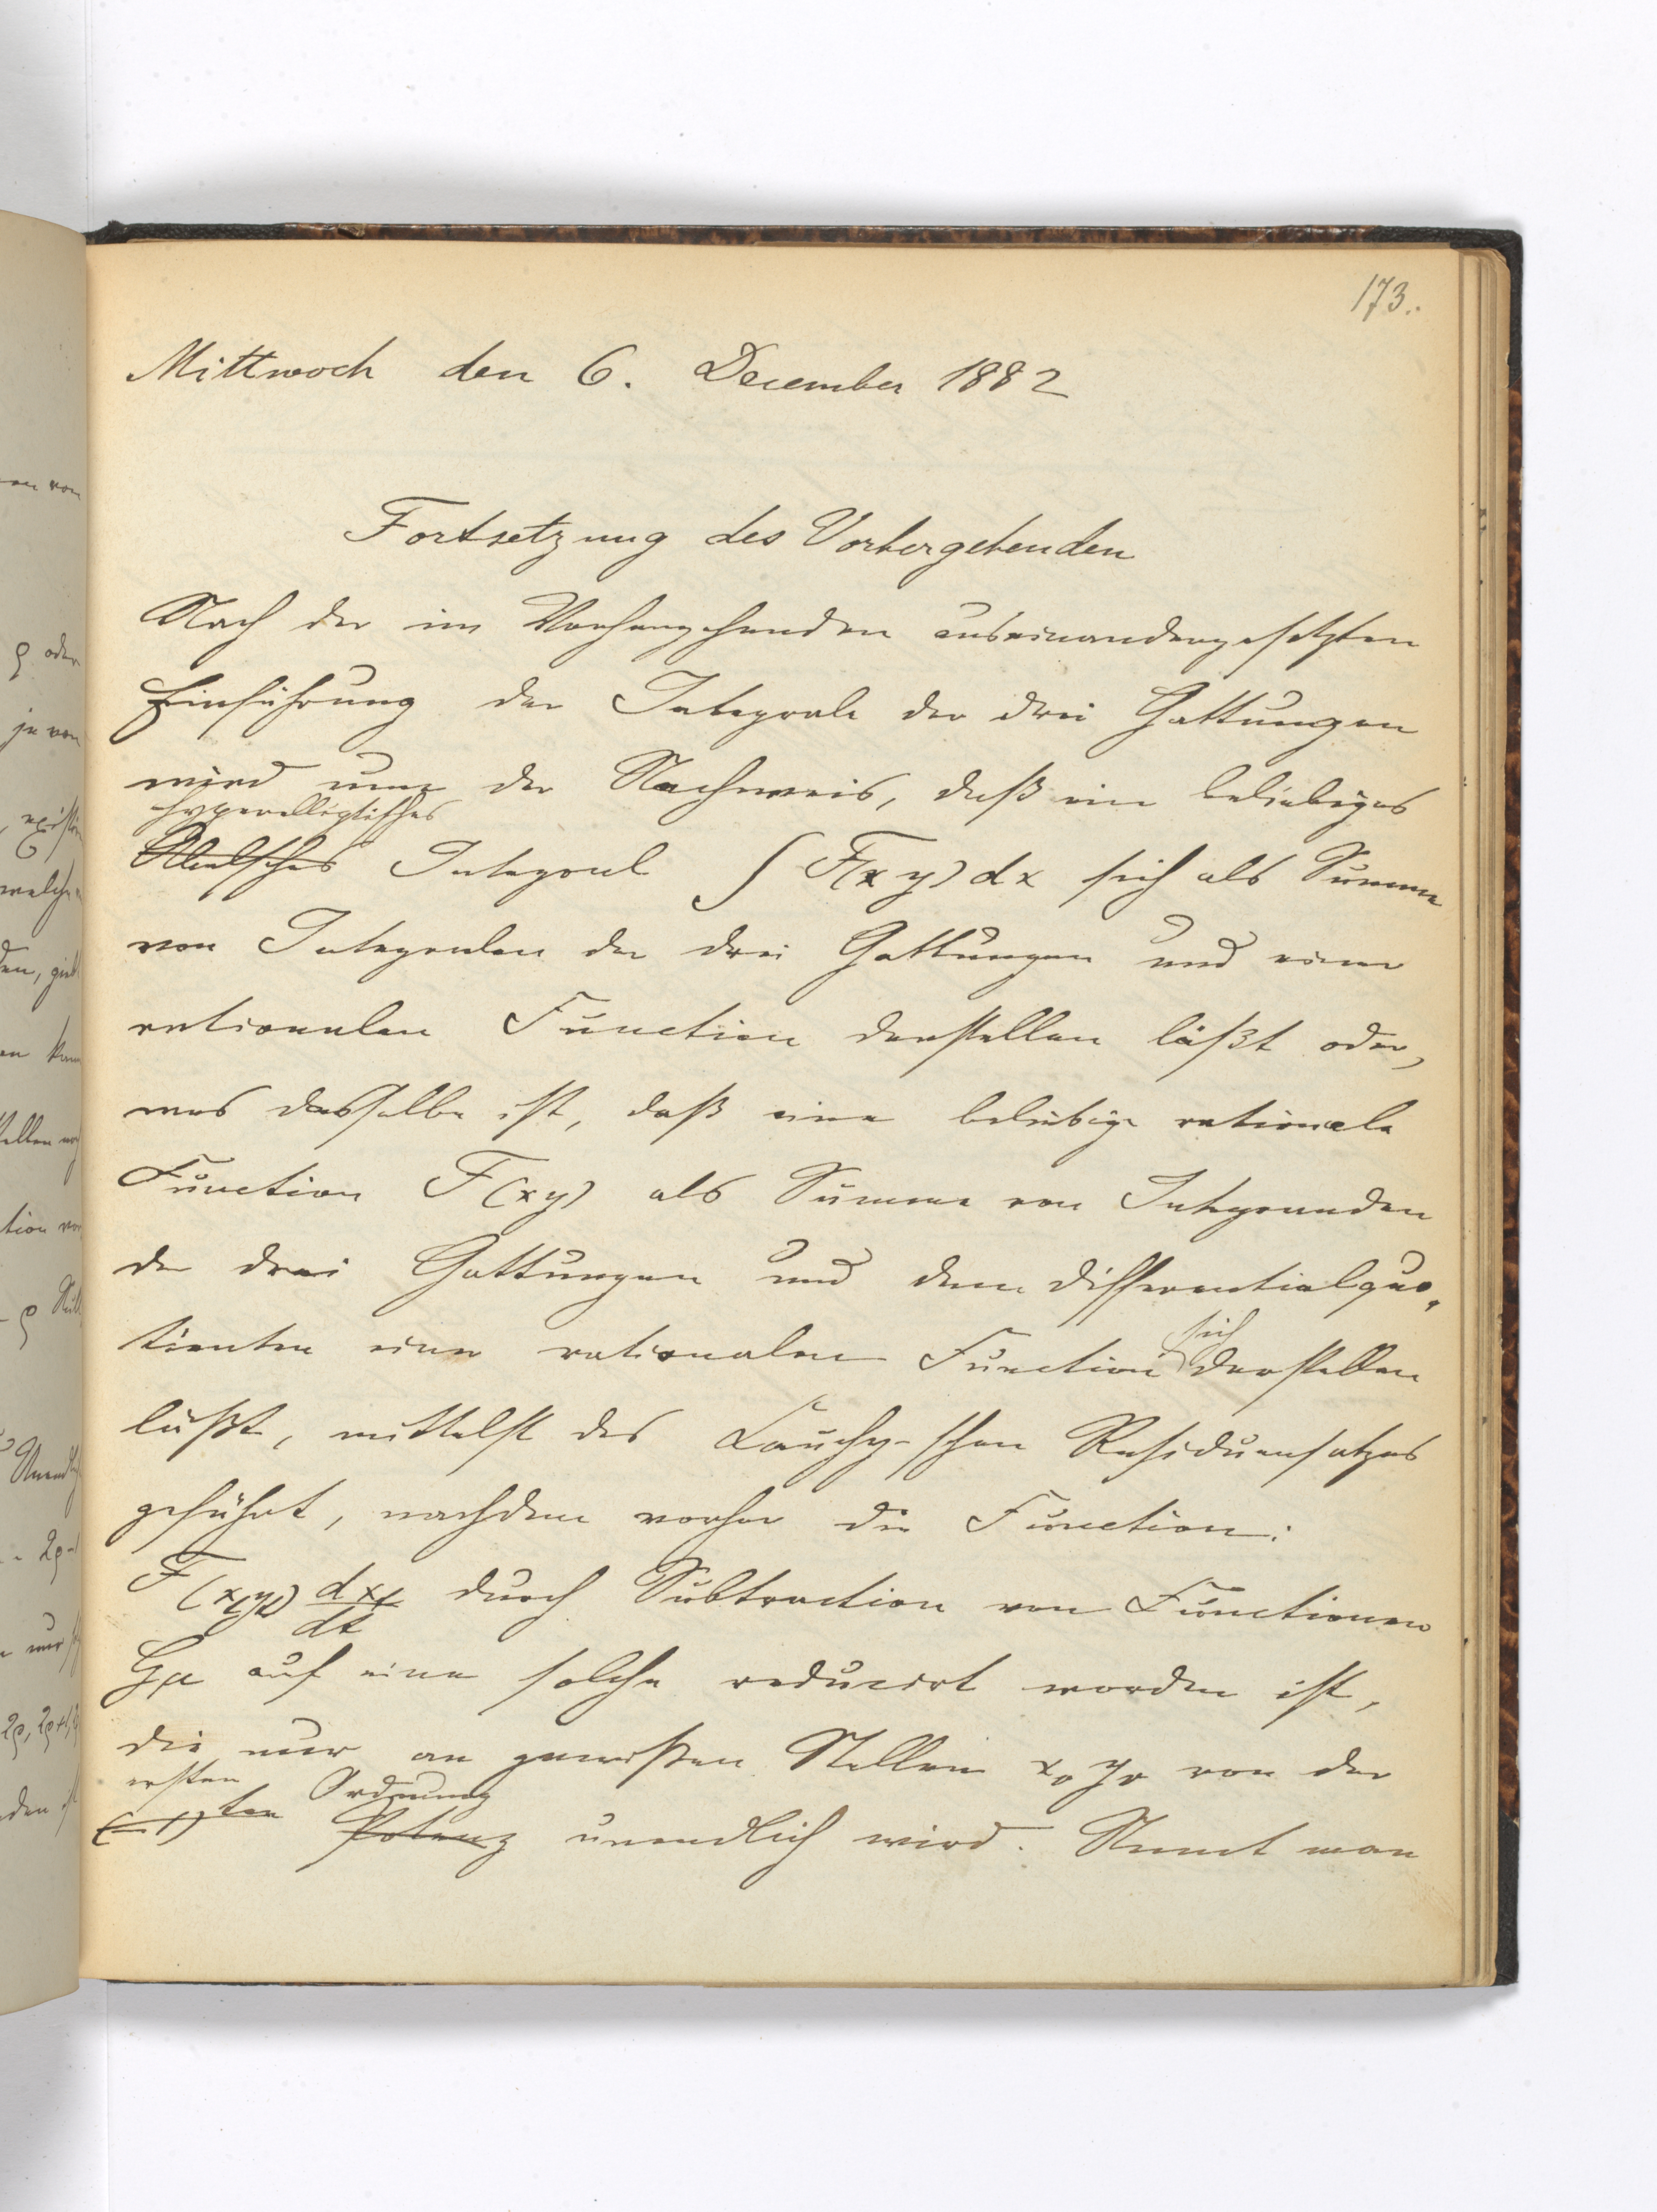 173.
Mittwoch den 6. December 1882
Fortsetzung des Vorhergehenden
Nach der im Vorhergehenden auseinandergesetzten
Einführung der Integrale der drei Gattungen
wird nun der Nachweis, daß ein beliebiges
hyperelliptisches
Abelsches Integral ∫ F(x y) dx sich als Summe
von Integralen der drei Gattungen und einer
rationalen Function darstellen läßt oder,
was dasselbe ist, daß eine beliebige rationale
Function F(xy) als Summe von Integranden
der drei Gattungen und dem Differentialquo-
tienten einer rationalen Function sich darstellen
läßt, mittelst des Cauchy-schen Residuensatzes
geführt, nachdem vorher die Function:
F(x_t y_t) dx_t/dt durch Subtraction von Functionen
G_μ auf eine solche reducirt worden ist,
die nur an gewissen Stellen x_0 y_0 von der
ersten Ordnung
(-1)ten Potenz unendlich wird. Nennt man
ϱ oder
je von
welche
tion
2ϱ, 2ϱ+1,